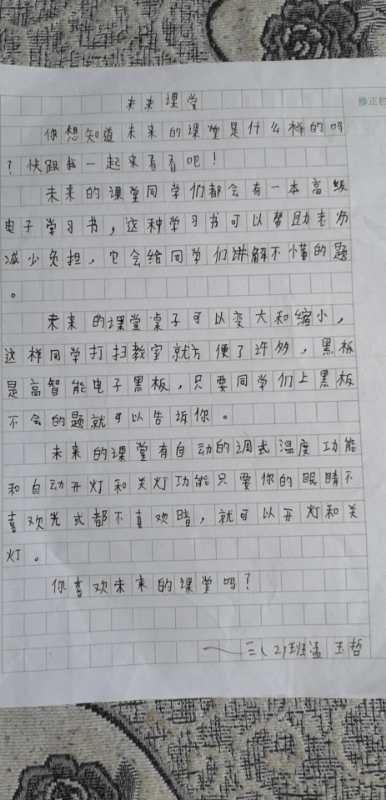 未来课堂
你想知道未来的课堂是什么样的吗
？快跟我一起来看看吧！
未来的课堂同学们都会有一本高级
电子学习书，这种学习书可以帮助老师
减少负担，它会给同学们讲解不懂的题
。
未来的课堂桌子可以变大和缩小，
这样同学打扫教室就方便了许多，黑板
是高智能电子黑板，只要同学们上黑板
不会的题就可以告诉你。
未来的课堂有自动的调式温度功能
和自动开灯和关灯功能只要你的眼睛不
喜欢光或都不喜欢暗，就可以开灯和关
灯。
你喜欢未来的课堂吗？
——三（2）班孟玉哲